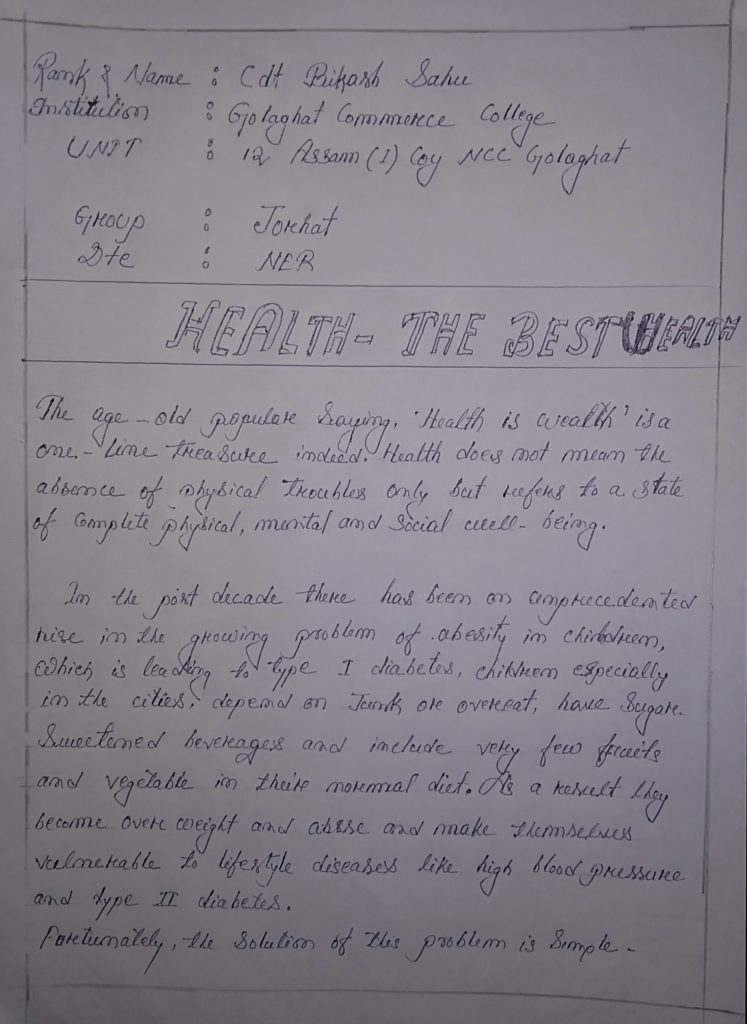 Rank & Name : Cdt Bikash Sahu
Institution : Golaghat Commerce College
UNIT : 12 Assam (I) Coy NCC Golaghat
Group : Jorhat
Dte : NER
HEALTH - THE BEST WHEALTH
The age-old popular saying, 'Health is wealth' is a
one-line treasure indeed. Health does not mean the
absence of physical troubles only but refers to a state
of complete physical, mental and social well-being.
In the past decade there has been an unprecedented
rise in the growing problem of obesity in children,
which is leading to type I diabetes, children especially
in the cities, depend on Junk or overeat, have Sugar-
Sweetened beverages and include very few fruits
and vegetable in their normal diet. As a result they
become over weight and abese and make themselves
vulnerable to lifestyle diseases like high blood pressure
and type II diabetes.
Fortunately, the solution of this problem is simple-